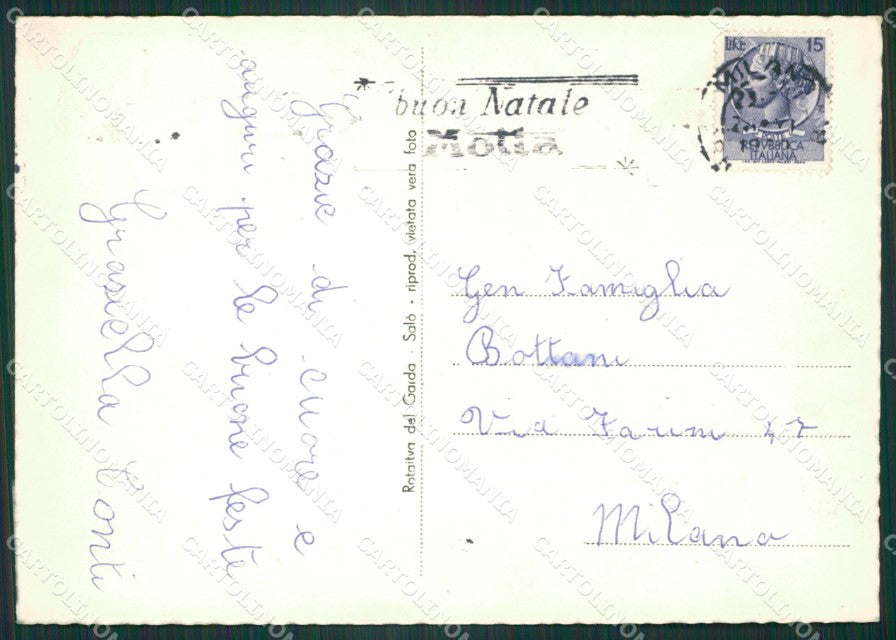 Grazie di cuore e
auguri per le buone feste
Graziella Conti
Rotaitva del Garda - Salò - riprod. vietata vera foto
buon Natale
Motta
LIRE 15
MILANO
REPVBBLICA
ITALIANA
Gen Famiglia
Bottani
Via Farini 47
Milano
CARTOLINOMANIA